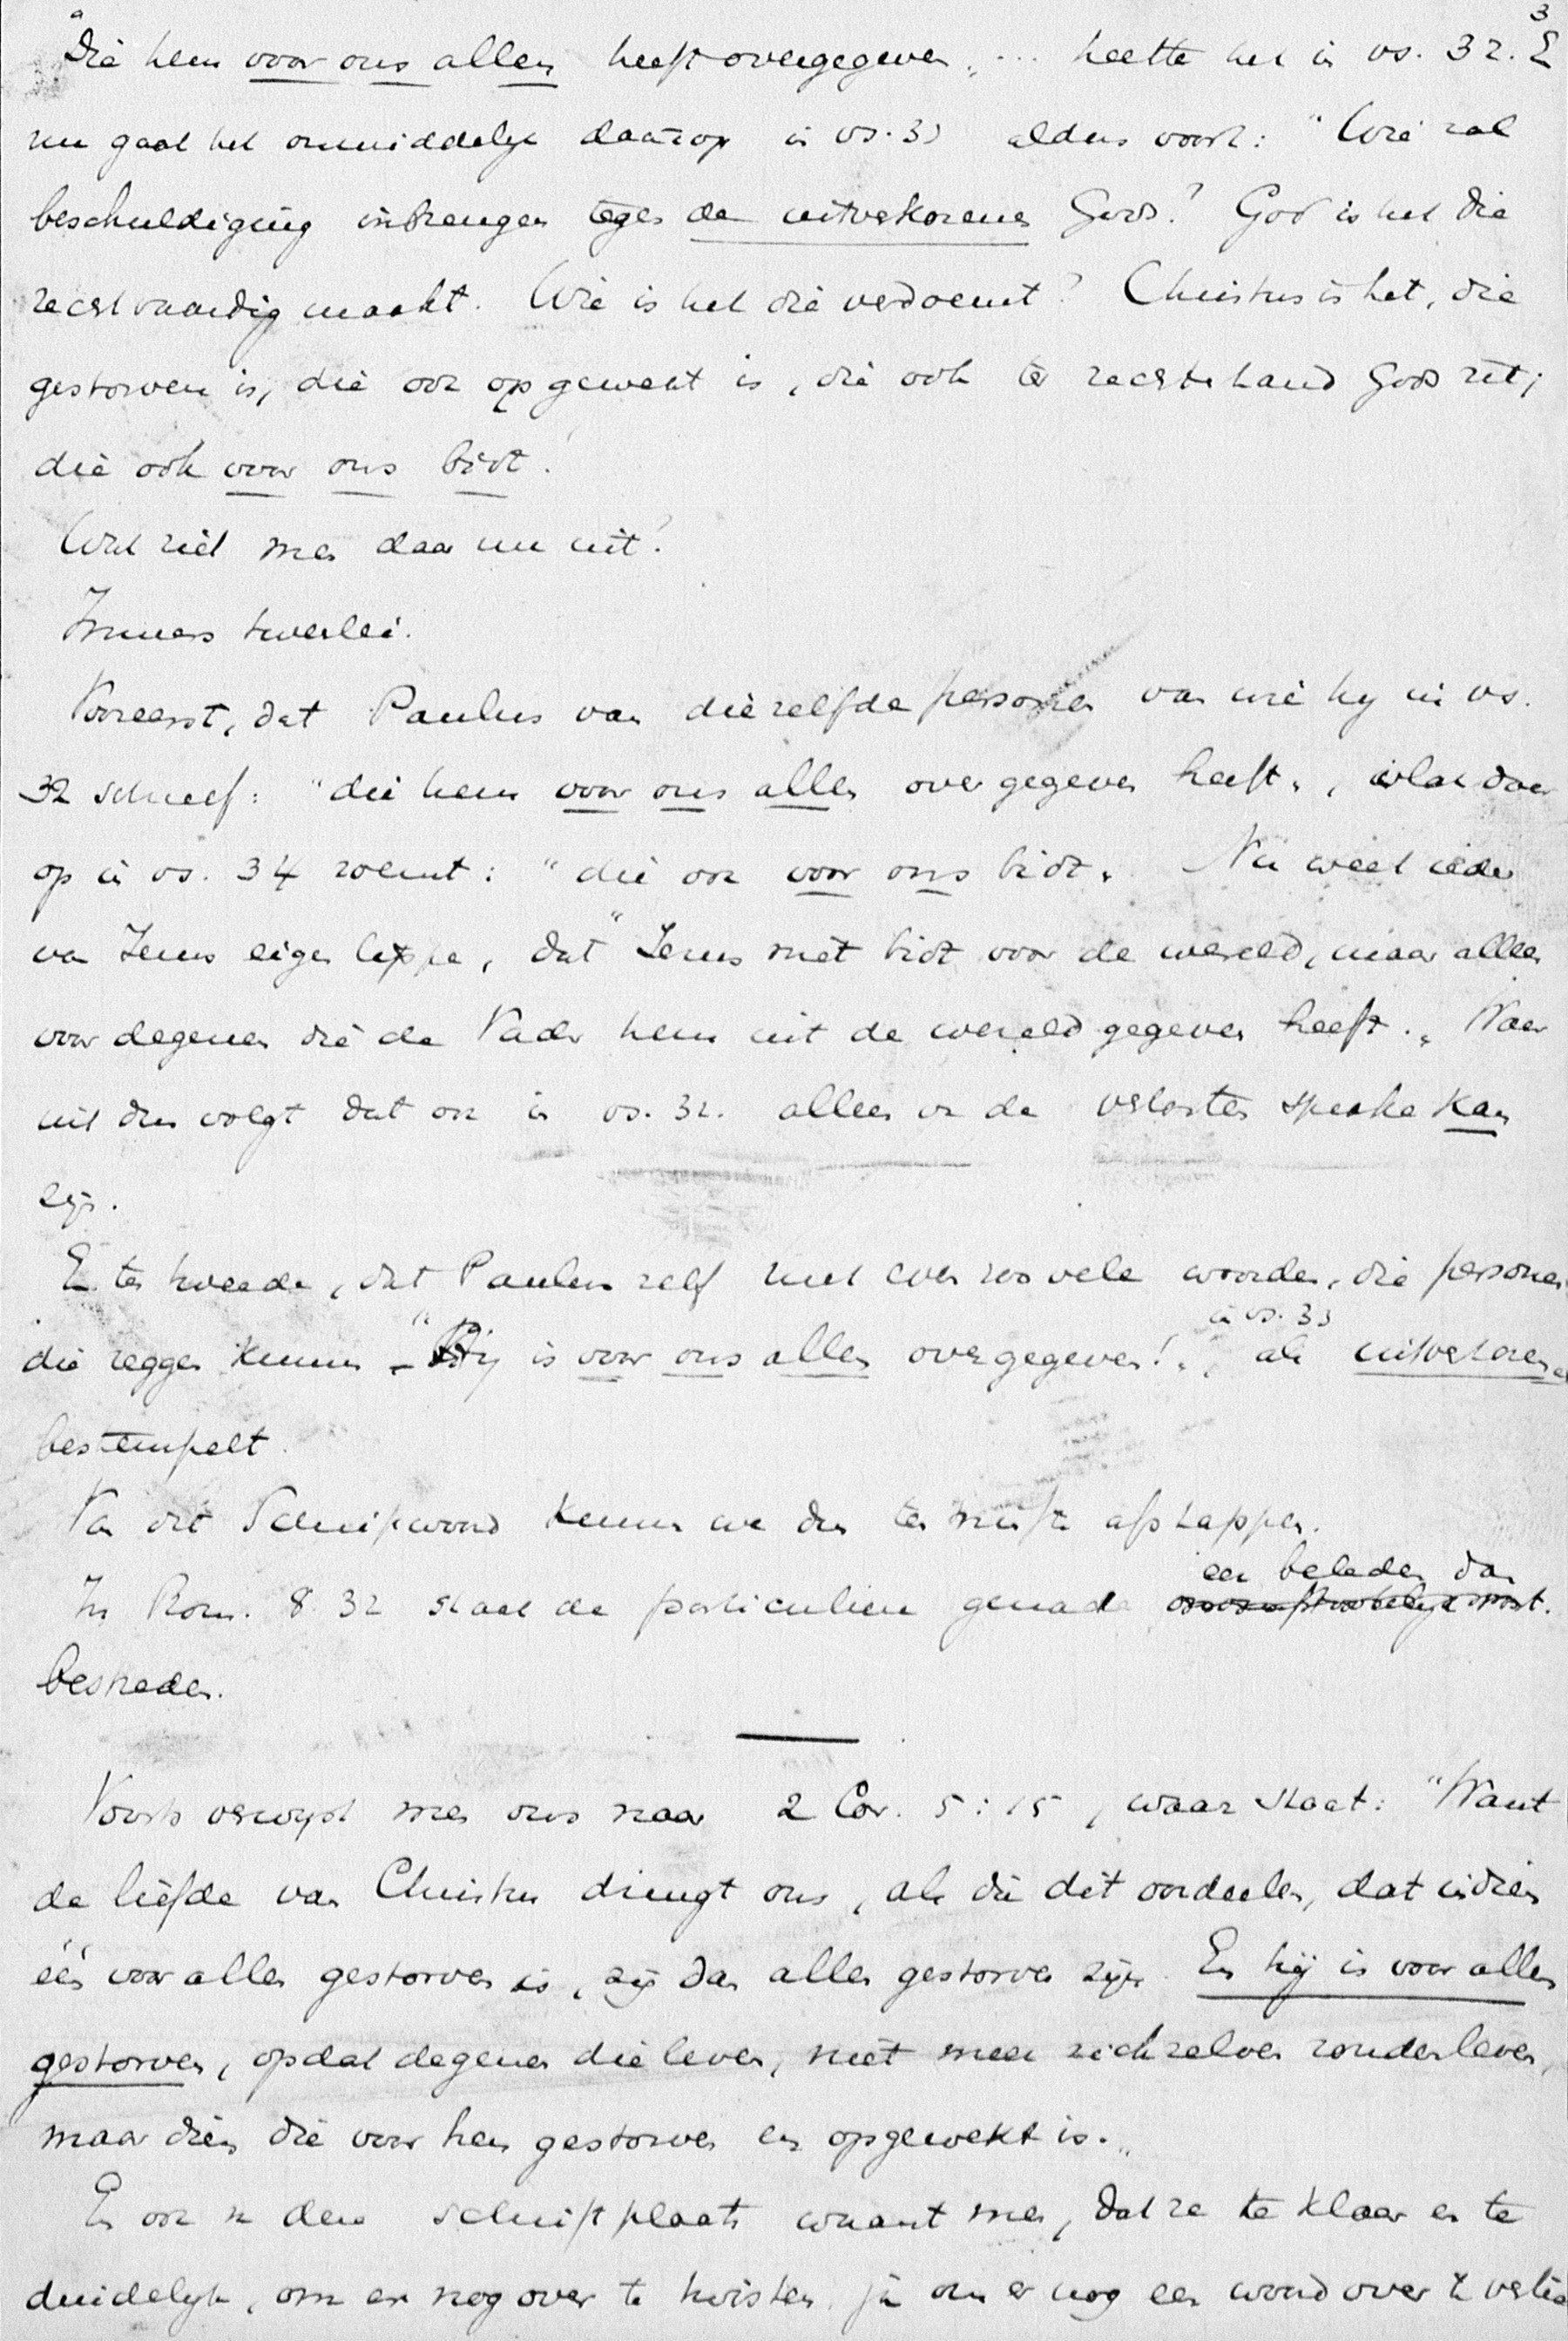 3
"Die hem voor ons allen heeft overgegeven„ ... heette het in vs. 32. En
nu gaat het onmiddelijk daarop in vs. 33 aldus voort: "Wie zal
beschuldiging inbrengen tegen de uitverkorenen Gods? God is het die
rechtvaardig maakt. Wie is het die verdoemt? Christus is het, die
gestorven is, die ook opgewekt is, die ook ter rechterhand Gods zit;
die ook voor ons bidt!
Wat ziet men daar nu uit?
Immers tweeërlei.
Vooreerst, dat Paulus van diezelfde personen van wie hij in vs.
32 schreef: "die hem voor ons allen overgegeven heeft„, vlak daar
op in vs. 34 roemt: "die ook voor ons bidt„. Nu weet ieder
van Jezus eigen lippen, dat "Jezus niet bidt voor de wereld, maar alleen
voor degenen die de Vader hem uit de wereld gegeven heeft.„ Waar
uit dus volgt dat ook in vs. 32. alleen van de verlosten sprake kan
zijn.
En ten tweede, dat Paulus zelf met even zoovele woorden, die personen
die zeggen kunnen "Hij is voor ons allen overgegeven!„, in vs. 33 als uitverkorenen
bestempelt.
Van dit Schriftwoord kunnen we dus ter nauwernood afstappen.
In Rom. 8:32 staat de particuliere genade eer beleden dan
bestreden.
Voorts verwijst men ons naar 2 Cor. 5:15, waar staat: "Want
de liefde van Christus dringt ons, als die dit oordeelen, dat indien
één voor allen gestorven is, zij dan allen gestorven zijn. En hij is voor allen
gestorven, opdat degenen die leven, niet meer zichzelven zouden leven,
maar dien die voor hen gestorven en opgewekt is.„
En ook van deze schriftplaats waant men, dat ze te klaar en te
duidelijk, om er nog over te twisten, ja om er nog een woord over te